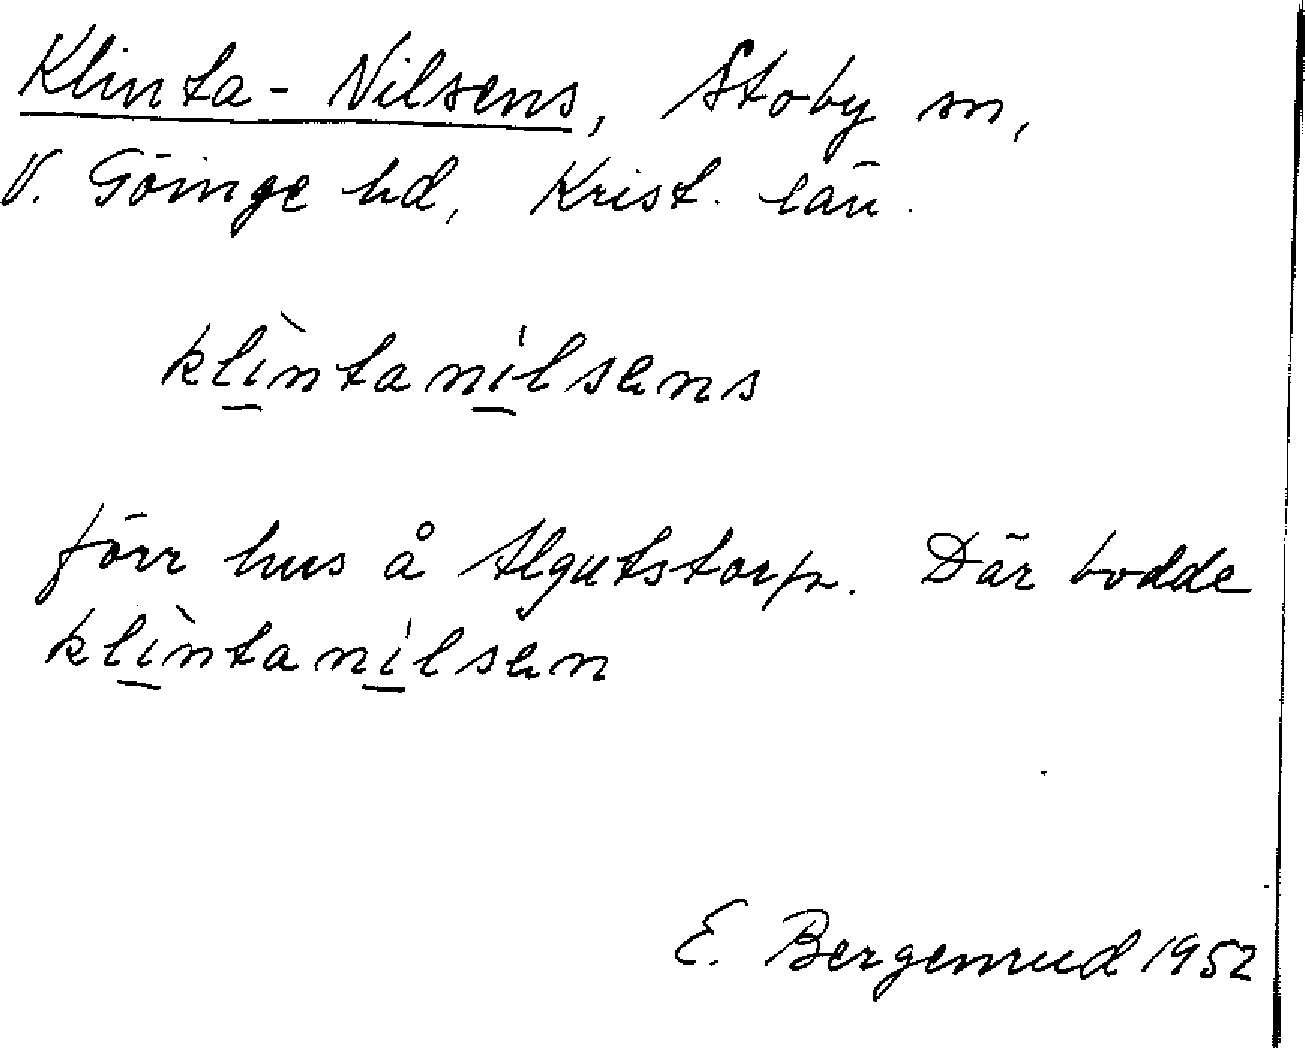 Klinta-Nilsens, Stoby sn,
V. Göinge hd, Krist. län.
klìntanílsens
förr hus å Algutstorp. Där bodde
klìntanílsen
E. Bergenrud 1952